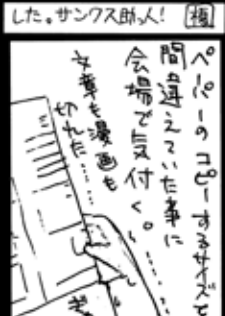 した。サンクス助っ人!
ペーパーのコピーするサイズを
間違えていた事に
会場で気付く。……
文章も漫画も
切れた……
ぎゃ